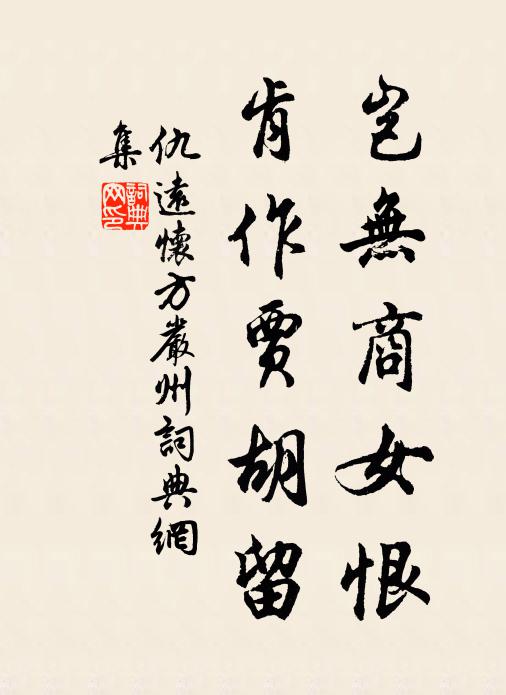 豈無商女恨
肯作賈胡留
仇遠懷方嚴州詞典網
集
詞典
网印